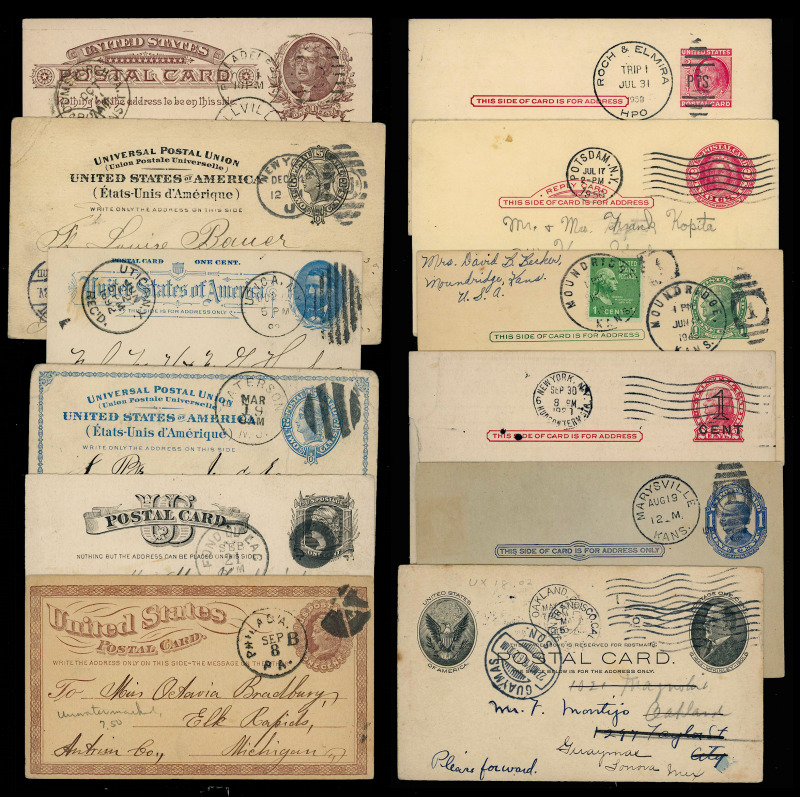 UNITED STATES
POSTAL CARD
Nothing but the address to be on this side
10 PM
UNIVERSAL POSTAL UNION
(Union Postale Universelle)
UNITED STATES OF AMERICA
(États-Unis d'Amérique)
WRITE ONLY THE ADDRESS ON THIS SIDE
NEW YORK
DEC
12
Louise Bauer
POSTAL CARD ONE CENT.
United States of America
UTICA
REC'D.
5 PM
UNIVERSAL POSTAL UNION
(Union Postale Universelle)
UNITED STATES OF AMERICA
(États-Unis d'Amérique)
WRITE ONLY THE ADDRESS ON THIS SIDE
MAR
19
N.J.
U S
POSTAL CARD
NOTHING BUT THE ADDRESS CAN BE PLACED ON THIS SIDE
FOND DU LAC
SEP
United States
POSTAL CARD.
WRITE THE ADDRESS ONLY ON THIS SIDE - THE MESSAGE ON THE
PHILAD'A.
SEP
8
PA.
B
To Miss Octavia Bradbury,
Elk Rapids,
Antrim Coy, Michigan
Unwatermarked,
7,50
ROCH & ELMIRA
TRIP 1
JUL 31
1950
HPO
PTS
POSTAL CARD
THIS SIDE OF CARD IS FOR ADDRESS
POTSDAM, N.Y.
JUL 17
2-PM
REPLY CARD
THIS SIDE OF CARD IS FOR ADDRESS
Mr. & Mrs. Frank Kopita
Mrs. David L. Becker,
Moundridge, Kans.
U.S.A.
MOUNDRIDGE
KANS.
1 CENT
MOUNDRIDGE
1 PM
JUN
KANS.
1
THIS SIDE OF CARD IS FOR ADDRESS
NEW YORK, N.Y.
SEP 30
8 PM
1
CENT
THIS SIDE OF CARD IS FOR ADDRESS
MARYSVILLE
AUG 19
12-M.
KANS.
1 1
THIS SIDE OF CARD IS FOR ADDRESS ONLY
UX 18.02
UNITED STATES
OF AMERICA
OAKLAND
SAN FRANCISCO, CA.
GUAYMAS
SON.
POSTAL CARD.
Mr. F. Montijo
Oakland
1297 Taylor St
City
Guaymas
Sonora Mex
Please forward.